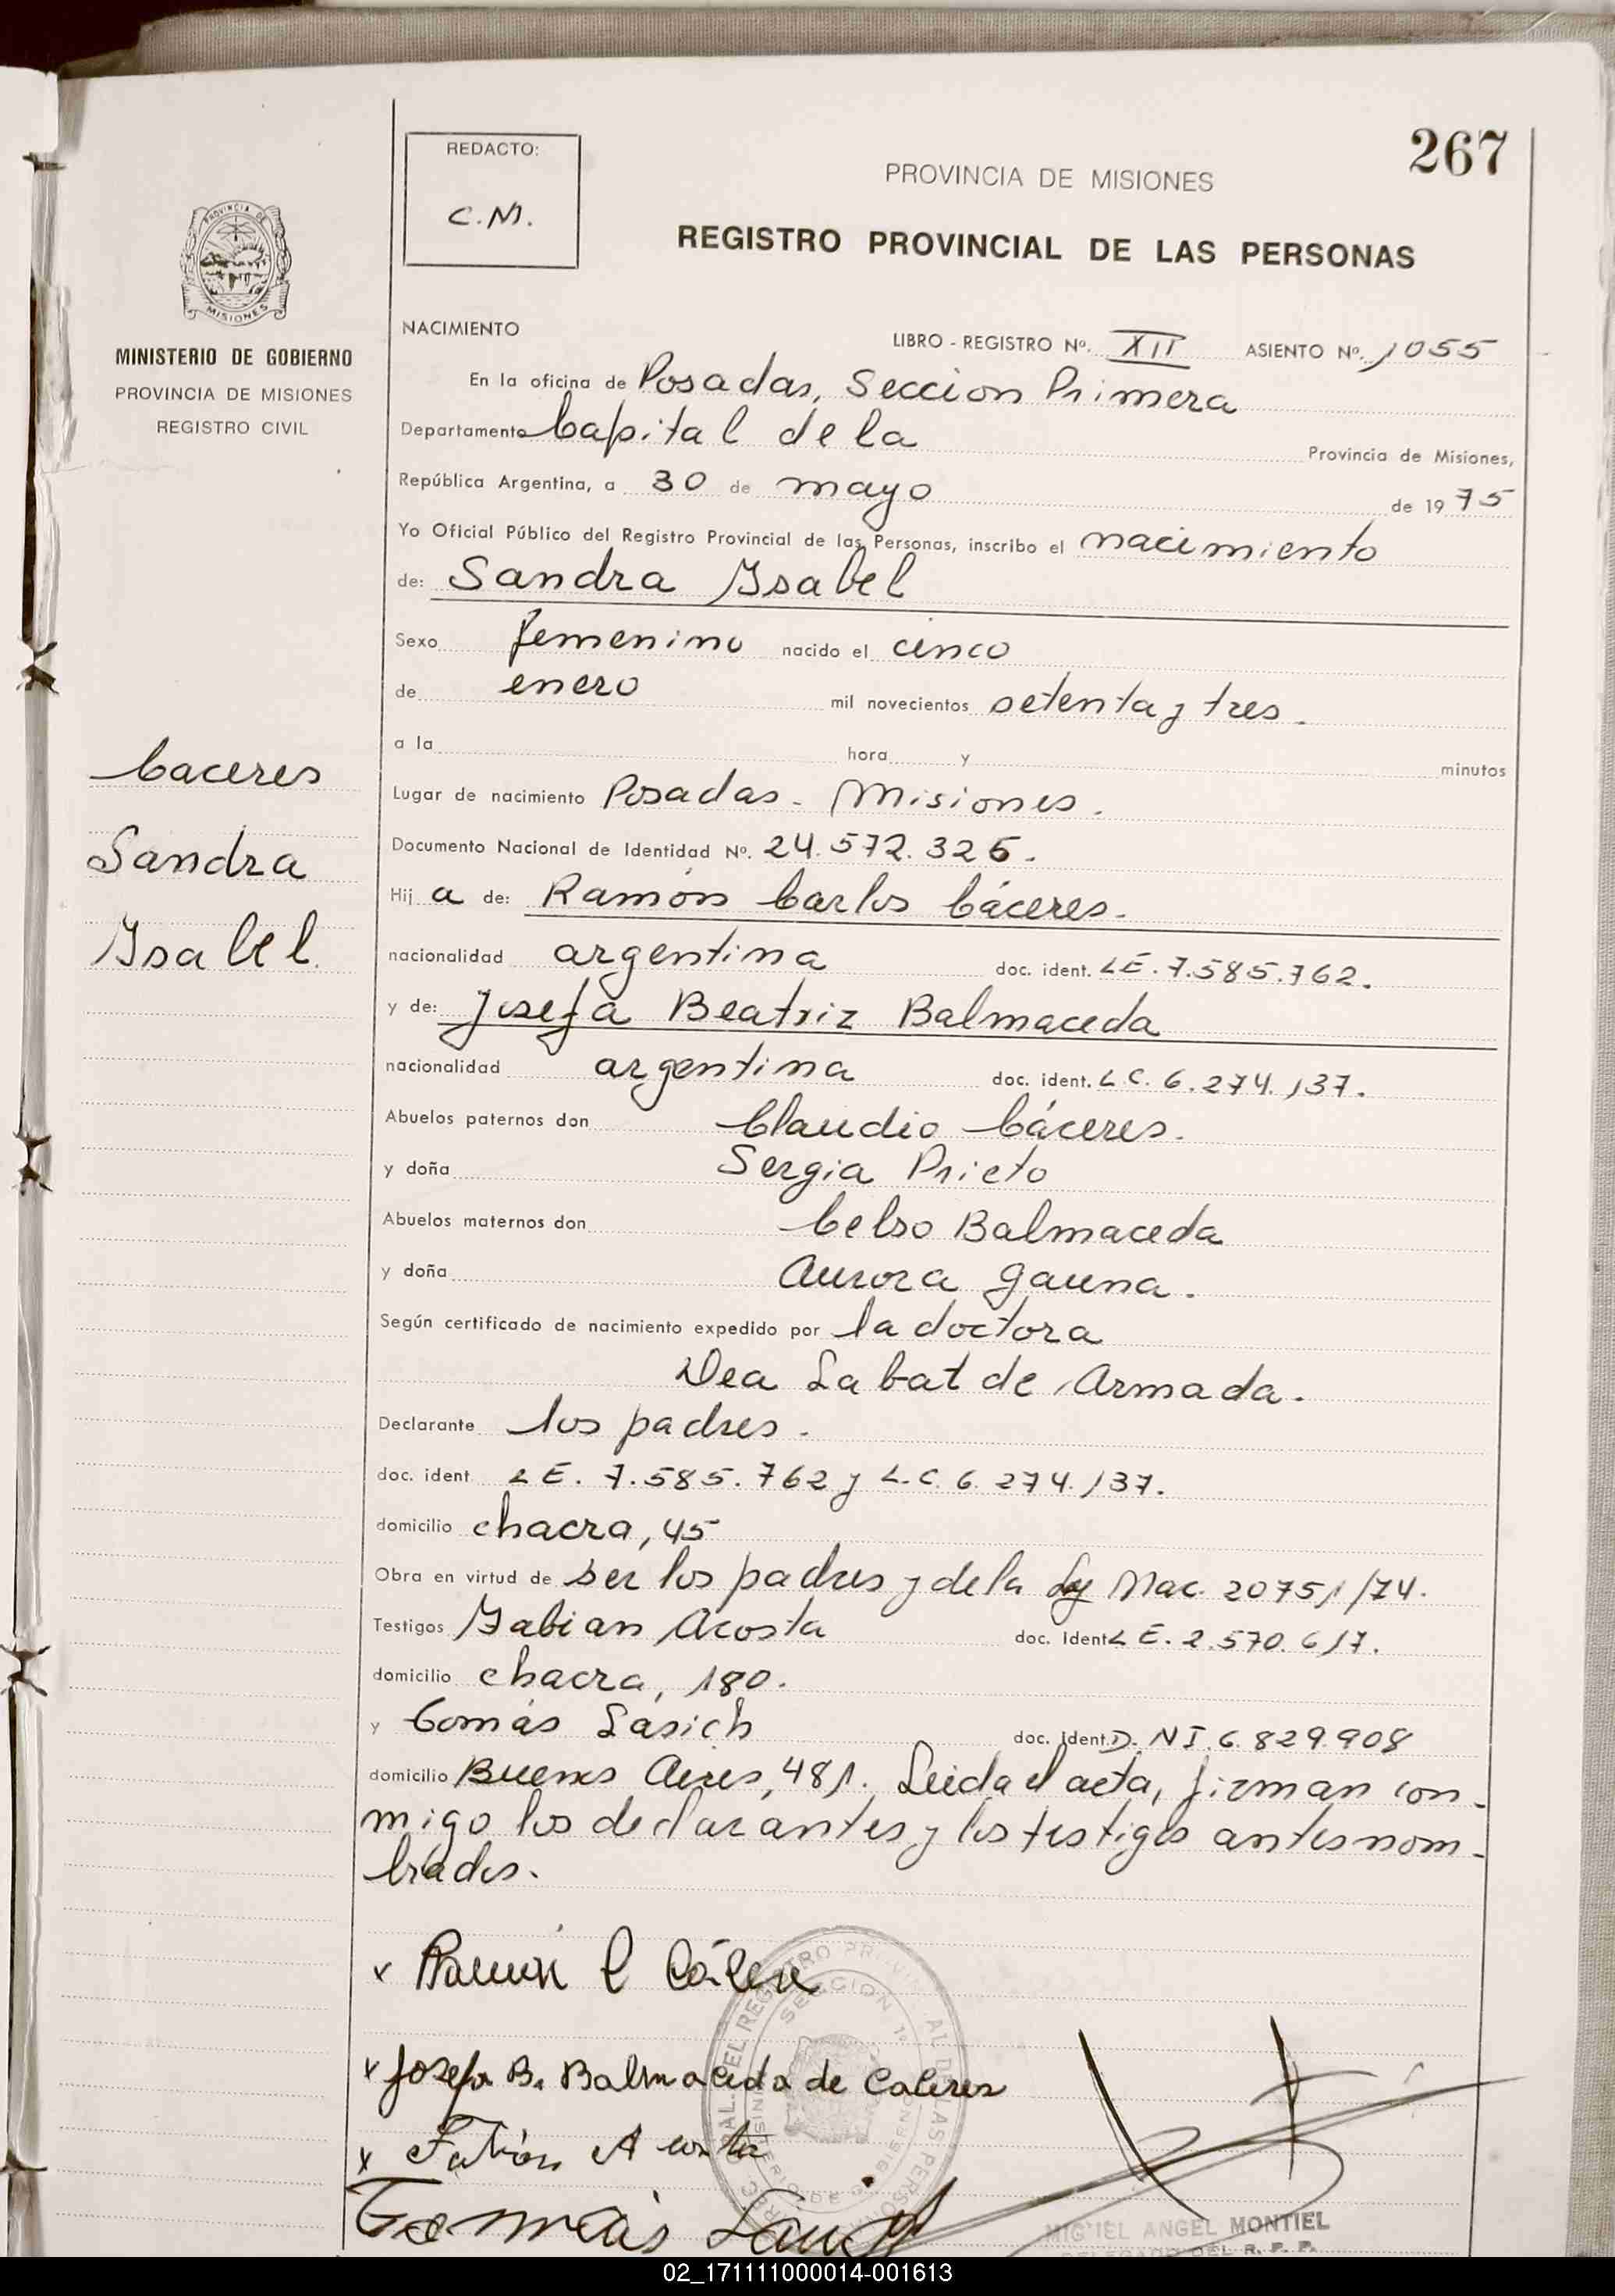 267
REDACTO:
C.M.
PROVINCIA DE MISIONES
REGISTRO PROVINCIAL DE LAS PERSONAS
PROVINCIA DE
MISIONES
MINISTERIO DE GOBIERNO
PROVINCIA DE MISIONES
REGISTRO CIVIL
NACIMIENTO
LIBRO - REGISTRO Nº. XII ASIENTO Nº. 1055
En la oficina de Posadas, Seccion Primera
Departamento Capital de la Provincia de Misiones,
República Argentina, a 30 de mayo de 1975
Yo Oficial Público del Registro Provincial de las Personas, inscribo el nacimiento
de: Sandra Isabel
Sexo femenino nacido el cinco
de enero mil novecientos setenta y tres.
a la hora y minutos
Caceres
Sandra
Isabel.
Lugar de nacimiento Posadas - Misiones.
Documento Nacional de Identidad Nº. 24.572.326.
Hij a de: Ramón Carlos Cáceres.
nacionalidad argentina doc. ident. LE. 7.585.762.
y de: Josefa Beatriz Balmaceda
nacionalidad argentina doc. ident. L.C. 6.274.137.
Abuelos paternos don Claudio Cáceres.
y doña Sergia Prieto
Abuelos maternos don Celso Balmaceda
y doña Aurora Gauna.
Según certificado de nacimiento expedido por la doctora
Dea Labat de Armada.
Declarante los padres.
doc. ident LE. 7.585.762 y L.C. 6.274.137.
domicilio chacra, 45
Obra en virtud de ser los padres y de la Ley Nac. 20751/74.
Testigos Fabian Acosta doc. Ident LE. 2.570.617.
domicilio chacra, 180.
y Tomás Lasich doc. Ident D.NI. 6.829.908
domicilio Buenos Aires, 481. Leida el acta, firman con-
migo los declarantes y los testigos antes nom-
brados.
x Ramón C Cáceres
x Josefa B. Balmaceda de Caceres
x Fabián Acosta
Tomás
SECCION 1ª
MIGUEL ANGEL MONTIEL
DELEGADO DEL R. P. P.
02_171111000014-001613